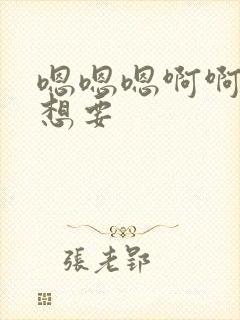 嗯嗯嗯啊啊
想要
張老郢